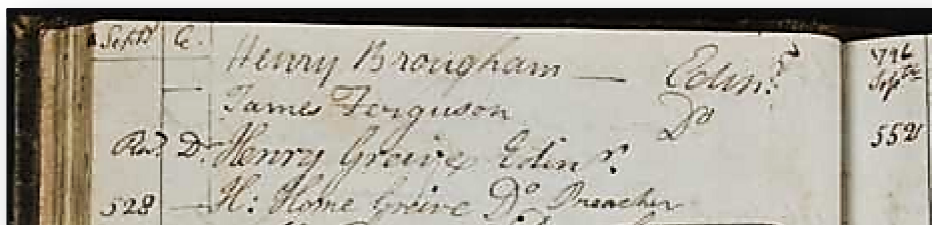 Septr 6. Henry Brougham — Edinr.
James Ferguson Do
Revd Dr. Henry Greive Edinr.
528 — H: Home Greive Do Preacher
796
Septr
552